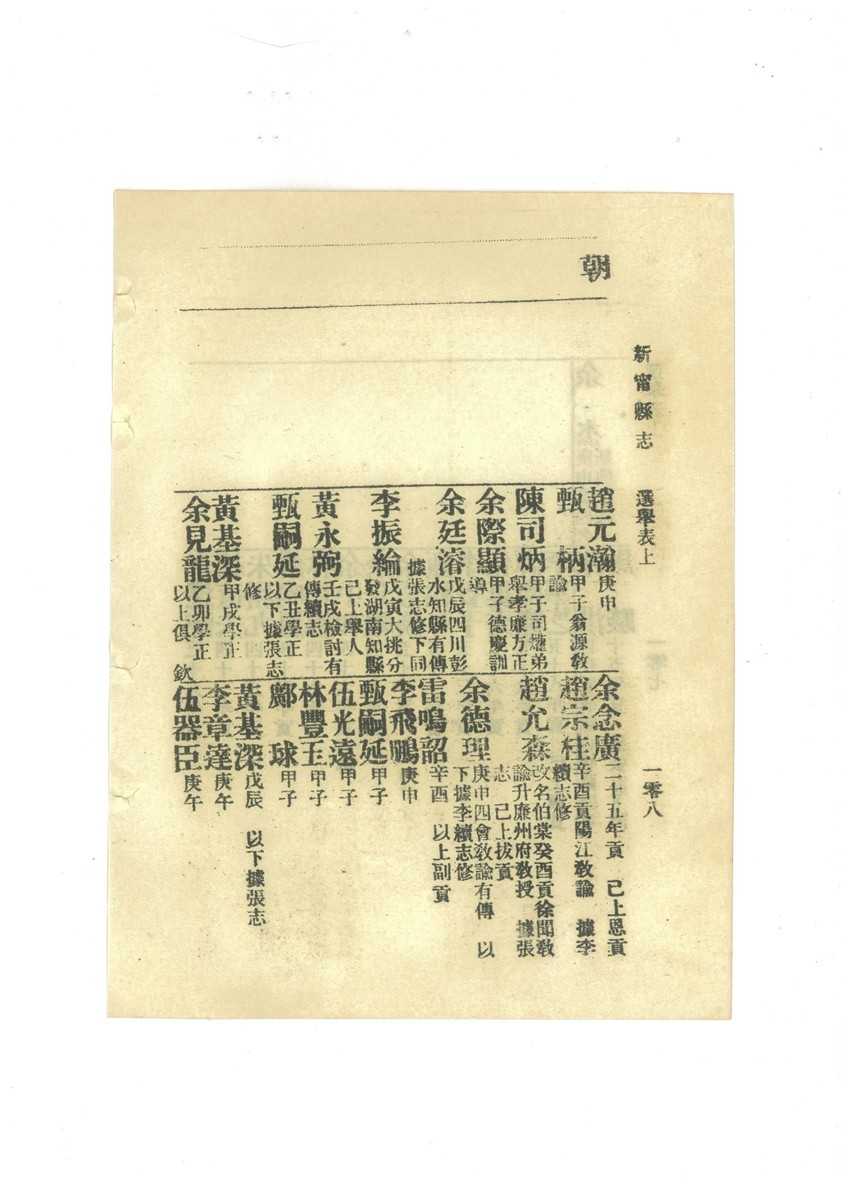 新甯縣志
選舉表上
一零八
朝
趙元瀚庚申
甄 柄甲子翁源敎
諭
陳司炳甲子司爟弟
舉孝廉方正
余際顯甲子德慶訓
導
余廷濬戊辰四川彭
水知縣有傳
據張志修下同
李振綸戊寅大挑分
發湖南知縣
己上舉人
黃永弼壬戌檢討有
傳續志
甄嗣延乙丑學正
以下據張志
修
黃基深甲戌學正
余見龍乙卯學正
以上俱 欽
余念廣二十五年貢 己上恩貢
趙宗桂辛酉貢陽江敎諭 據李
續志修
趙允森改名伯棠癸酉貢徐聞敎
諭升廉州府敎授 據張
志 己上拔貢
余德理庚申四會敎諭有傳 以
下據李續志修
雷鳴韶辛酉 以上副貢
李飛鵬庚申
甄嗣延甲子
伍光遠甲子
林豐玉甲子
鄺 球甲子
黃基深戊辰 以下據張志
李章達庚午
伍器臣庚午